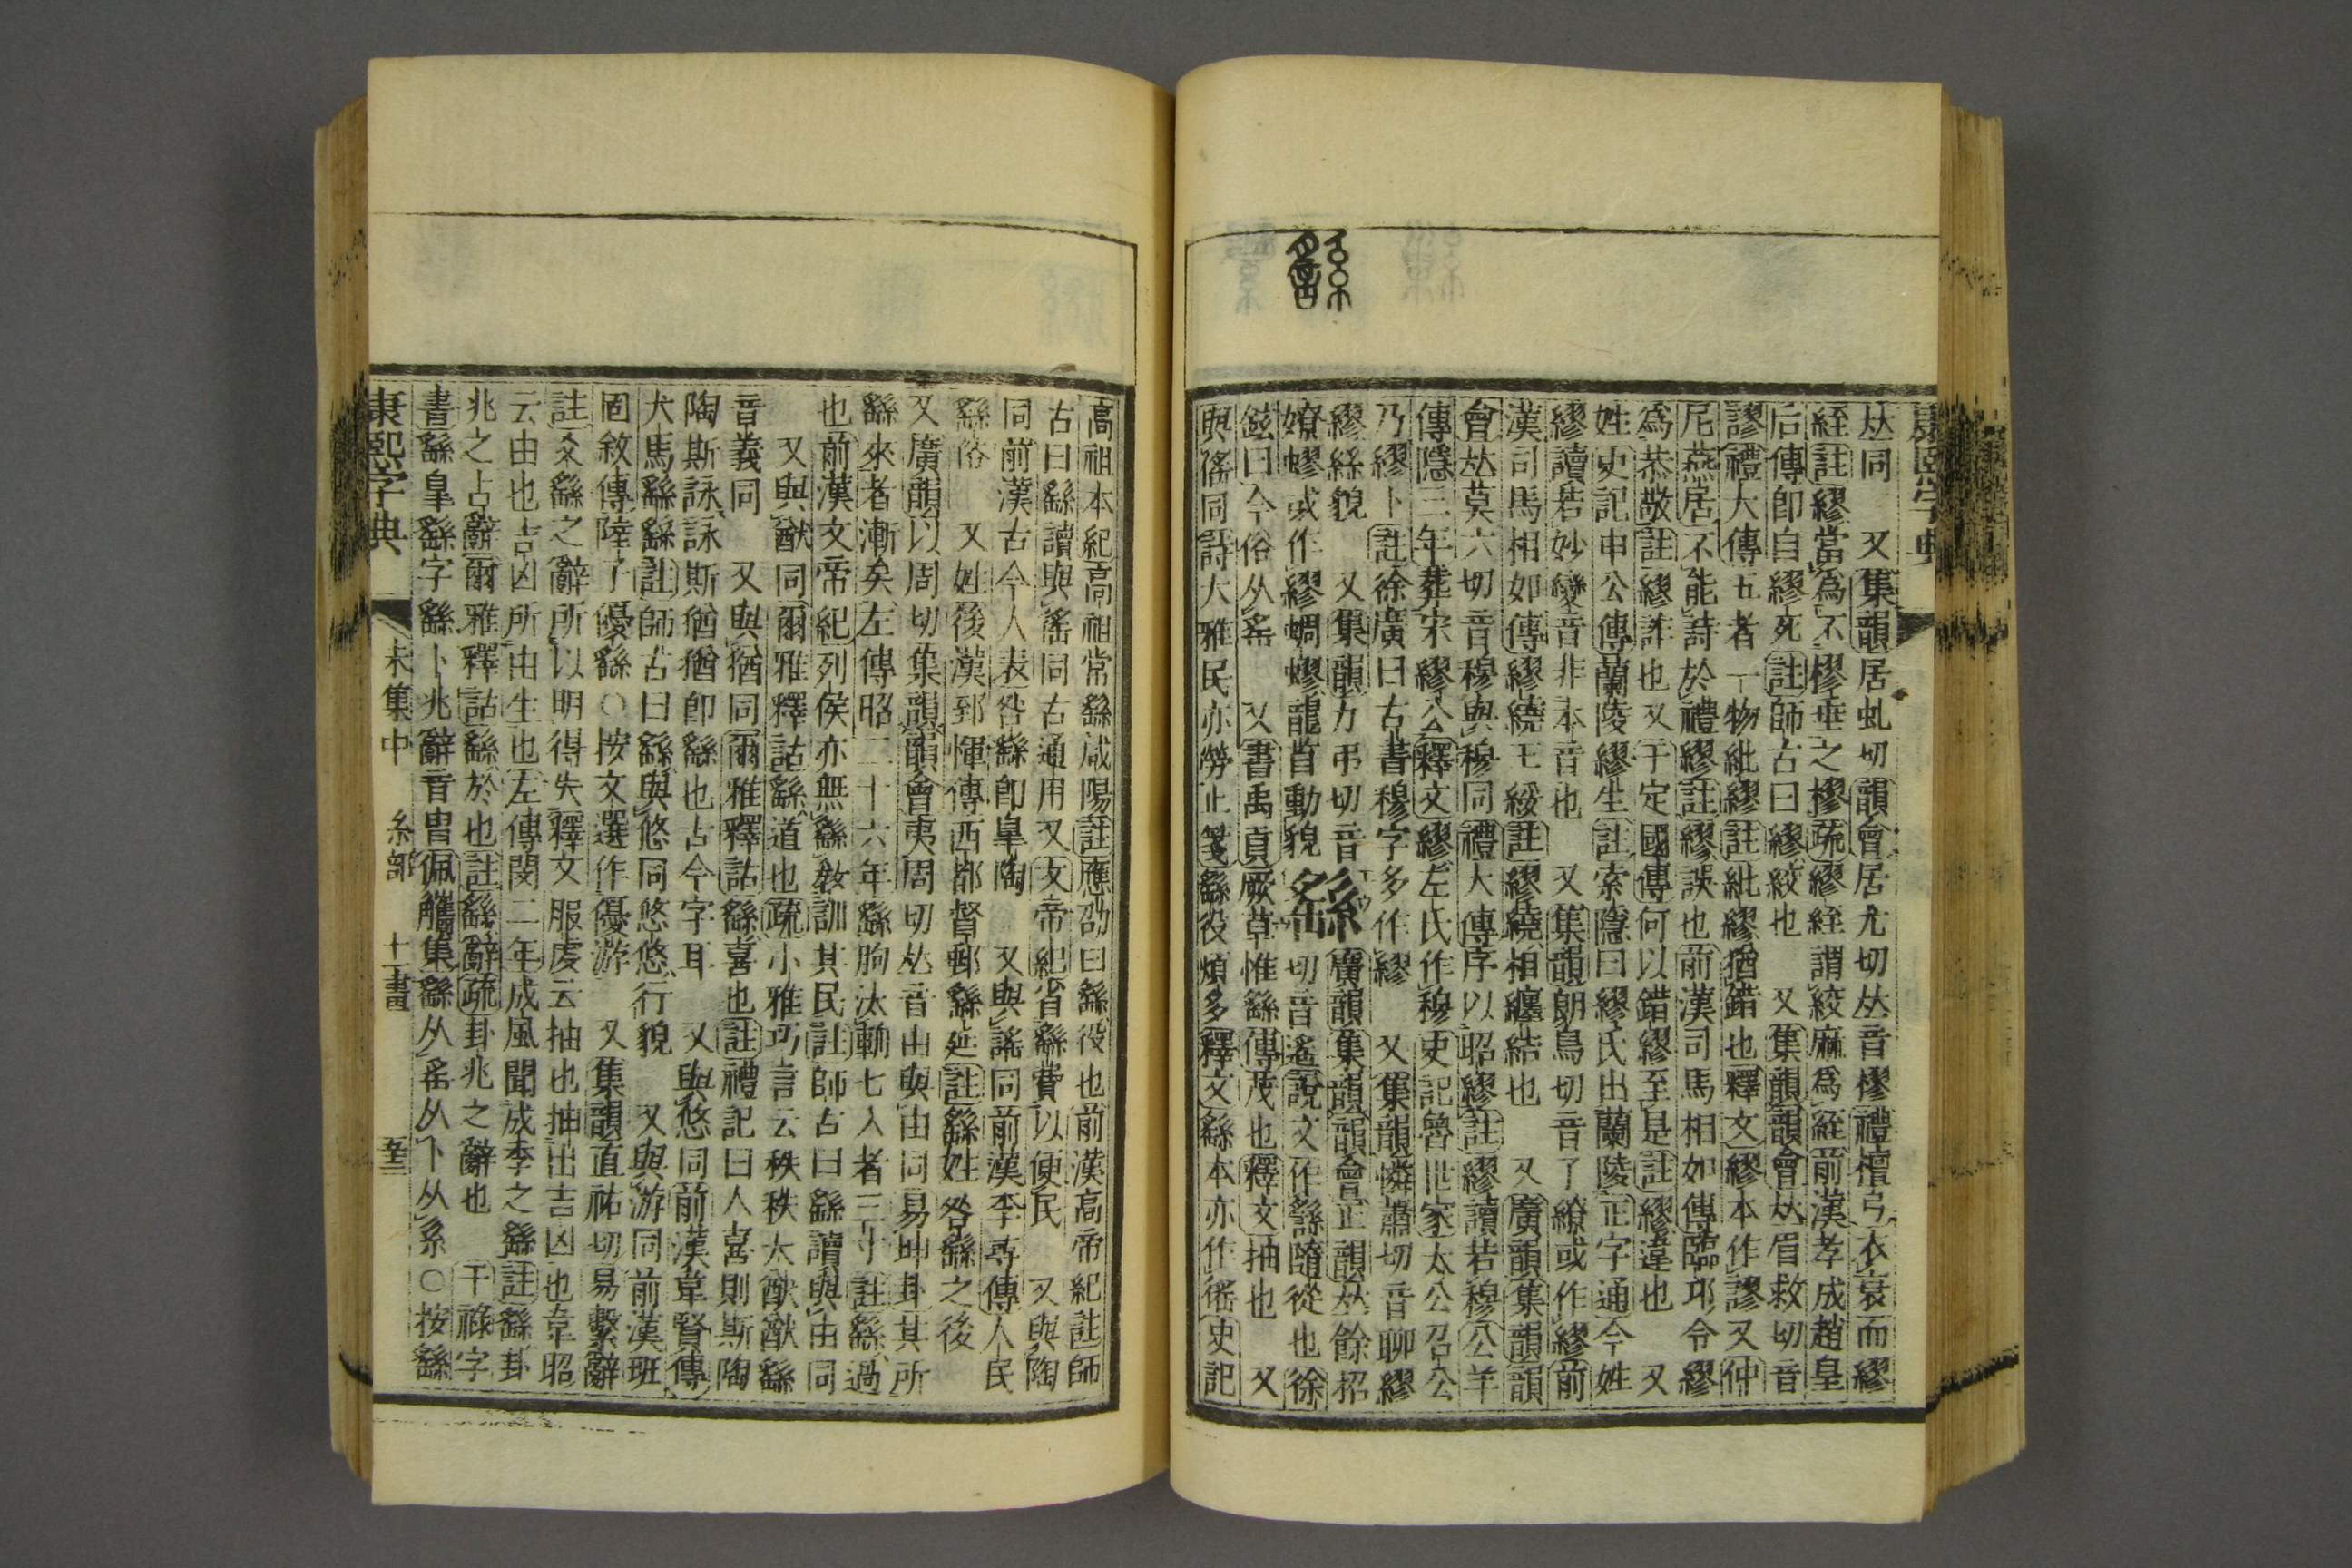 康熙字典
𠀤同　又集韻居虬切韻會居尤切𠀤音樛禮檀弓衣衰而繆
絰註繆當爲不樛垂之樛疏繆絰謂絞麻爲絰前漢孝成趙皇
后傳卽自繆死註師古曰繆絞也　又集韻韻會𠀤眉救切音
謬禮大傳五者一物紕繆註紕繆猶錯也釋文繆本作謬又仲
尼燕居不能詩於禮繆註繆誤也前漢司馬相如傳臨邛令繆
爲恭敬註繆詐也又于定國傳何以錯繆至是註繆違也　又
姓史記申公傳蘭陵繆生註索隱曰繆氏出蘭陵正字通今姓
繆讀若妙變音非本音也　又集韻朗鳥切音了繚或作繆前
漢司馬相如傳繆繞王綏註繆繞相纏結也　又廣韻集韻韻
會𠀤莫六切音穆與穆同禮大傳序以昭繆註繆讀若穆公羊
傳隱三年葬宋繆公釋文繆左氏作穆史記魯世家太公召公
乃繆卜註徐廣曰古書穆字多作繆　又集韻憐蕭切音聊繆
繆絲貌　又集韻力弔切音
嫽蟉或作繆蜩蟉龍首動貌
繇
廣韻集韻韻會正韻𠀤餘招
切音遙說文作䌛隨從也徐
鉉曰今俗从䍃　又書禹貢厥草惟繇傳茂也釋文抽也　又
與徭同詩大雅民亦勞止箋繇役煩多釋文繇本亦作徭史記
高祖本紀高祖常繇咸陽註應劭曰繇役也前漢高帝紀註師
古曰繇讀與徭同古通用又文帝紀省繇費以便民　又與陶
同前漢古今人表咎繇卽皐陶　又與謠同前漢李尋傳人民
繇俗　又姓後漢郅惲傳西都督郵繇延註繇姓咎繇之後
又廣韻以周切集韻韻會夷周切𠀤音由與由同易坤卦其所
繇來者漸矣左傳昭二十六年繇朐汰輈七入者三寸註繇過
也前漢文帝紀列侯亦無繇敎訓其民註師古曰繇讀與由同
又與猷同爾雅釋詁繇道也疏小雅巧言云秩秩大猷猷繇
音義同　又與猶同爾雅釋詁繇喜也註禮記曰人喜則斯陶
陶斯詠詠斯猶猶卽繇也古今字耳　又與悠同前漢韋賢傳
犬馬繇繇註師古曰繇與悠同悠悠行貌　又與游同前漢班
固敘傳陸子優繇○按文選作優游　又集韻直祐切易繫辭
註爻繇之辭所以明得失釋文服虔云抽也抽出吉凶也韋昭
云由也吉凶所由生也左傳閔二年成風聞成季之繇註繇卦
兆之占辭爾雅釋詁繇於也註繇辭疏卦兆之辭也　干祿字
書繇皐繇字繇卜兆辭音冑佩觿集繇从䍃从卜从系○按繇
康熙字典　未集中　糸部　十一畫